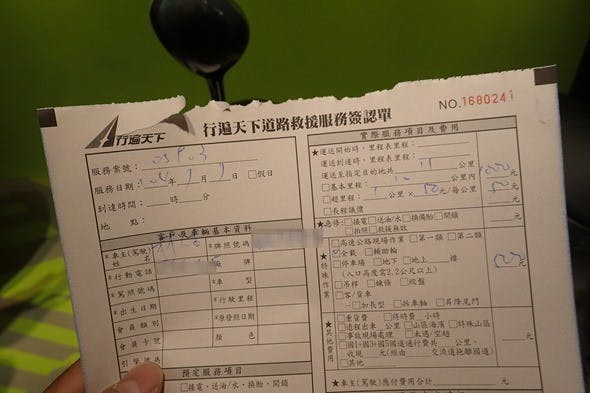 NO.168024
行遍天下
行遍天下道路救援服務簽認單
服務案號：
服務日期：104年1月1日 □假日
到達時間： 時 分
地 點：
客戶及車輛基本資料
*車主(駕駛)姓名
*牌照號碼
*行動電話
廠 牌
*駕照號碼
*車 型
*出生日期
*行駛里程
會員類別
*原發照日期
會員卡號
顏 色
引擎號碼
預定服務項目
□接電、送油/水、換胎、開鎖
實際服務項目及費用
★運送開始時，里程表里程：
運送到達時，里程表里程：
運送至指定目的地共 11 公里
□基本里程： 公里內
□超里程： 公里× 50元/每公里 50元
□長程議價
★急修：□接電□送油/水□換備胎□開鎖
□拍照□救援無效
元
★特殊作業
□高速公路現場作業□第一類□第二類
全載□輔助輪
□停車場□地下□地上 樓
(入口高度需2.2公尺以上)
□吊桿□絞盤
□客/貨車
□加長型□拆車軸□昇降尾門
元
★其他費用
□重貨費□待時費 小時
□遠程出車 公里□山區海濱□特殊山區
□事故現場處理□未遇/空趟
□國1+國3+國5國道通行費共 公里，
收現 元(經由 交流道拖離國道)
□其他
★車主(駕駛)應付費用合計 元